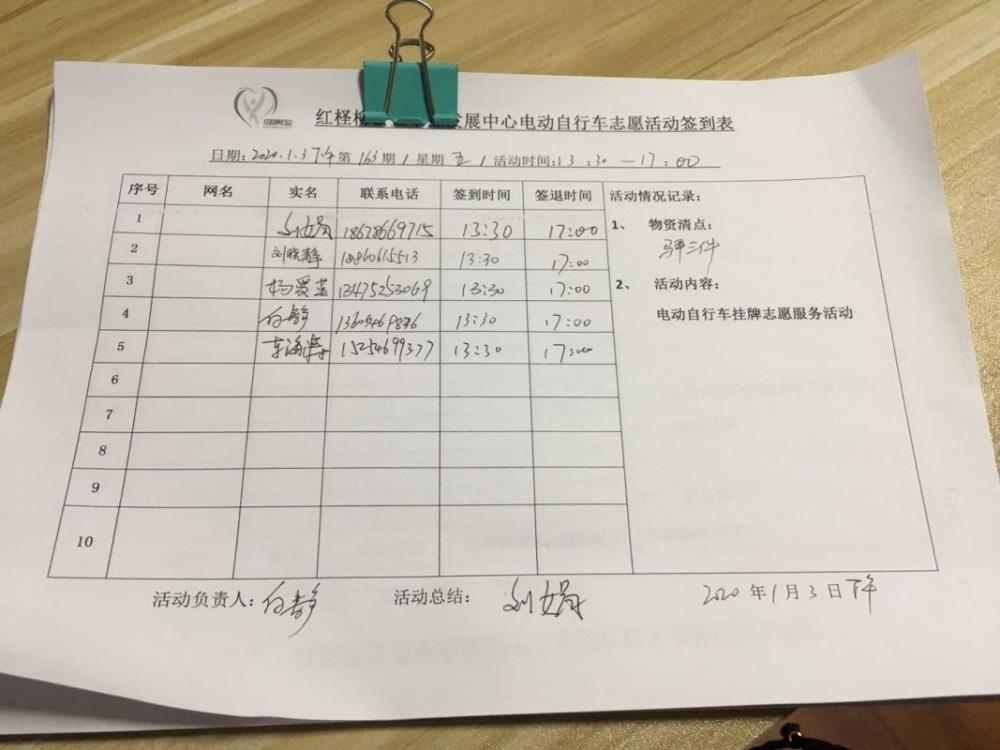 红柽柳 发展中心电动自行车志愿活动签到表
日期:2020.1.3下午第163期/星期五/活动时间:13:30—17:00
序号 网名 实名 联系电话 签到时间 签退时间 活动情况记录:
1 刘娟 18678669715 13:30 17:00
1、 物资清点:
马甲三件
2 刘晓静 18860615513 13:30 17:00
3 杨爱兰 13475253069 13:30 17:00
2、 活动内容:
电动自行车挂牌志愿服务活动
4 白静 13:30 17:00
5 15254699377 13:30 17:00
6
7
8
9
10
活动负责人:白静 活动总结: 刘娟 2020年1月3日下午